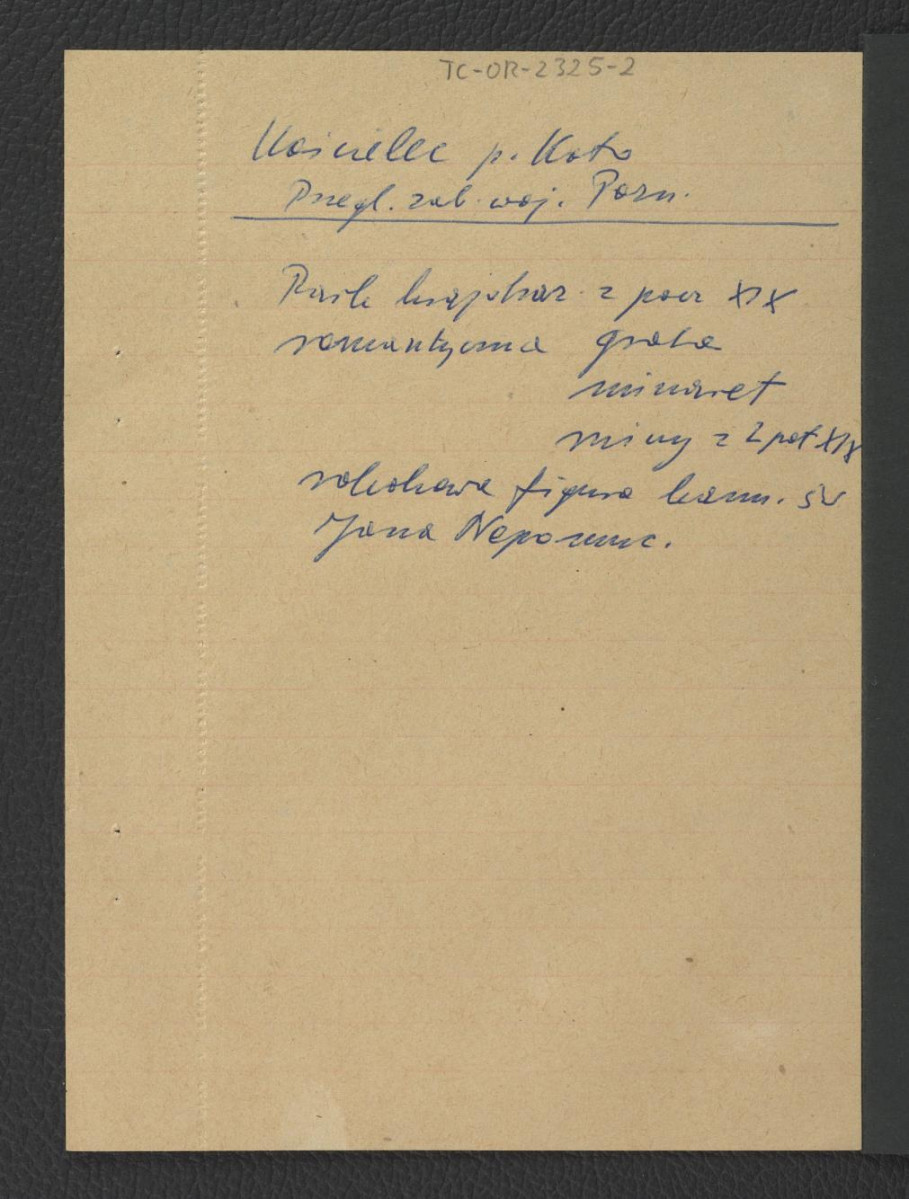 TC-OR-2325-2
Kościelec p. Koło
Przegl. zab. woj. Pozn.
Park krajobraz. z pocz XIX
romantyczna grota
minaret
ruiny z 2 poł XIX
rokokowa figura kamn. św
Jana Nepomuc.